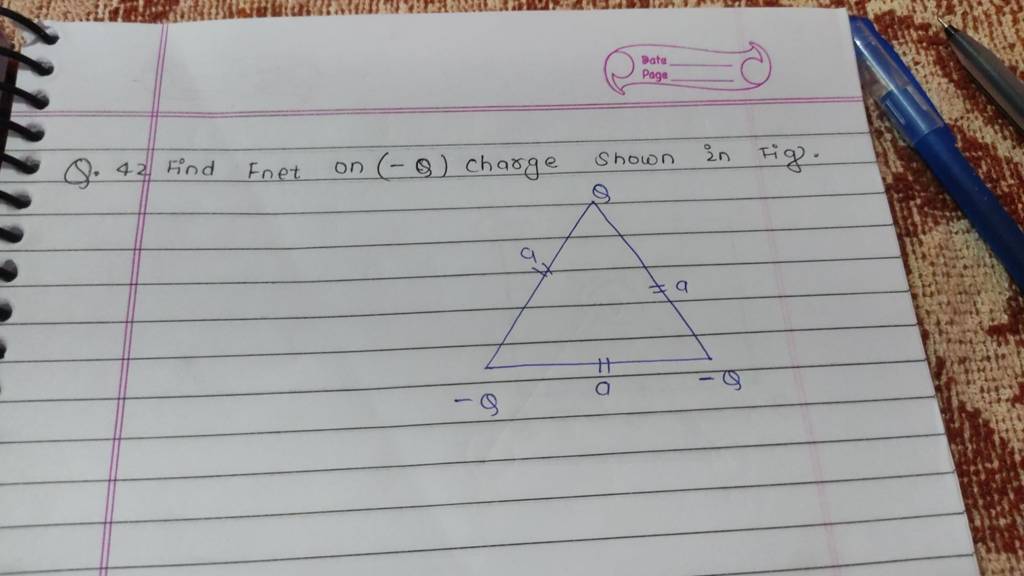 Date
Page
Q. 42 Find Fnet on (-Q) charge shown in Fig.
Q
a
a
a
-Q
-Q